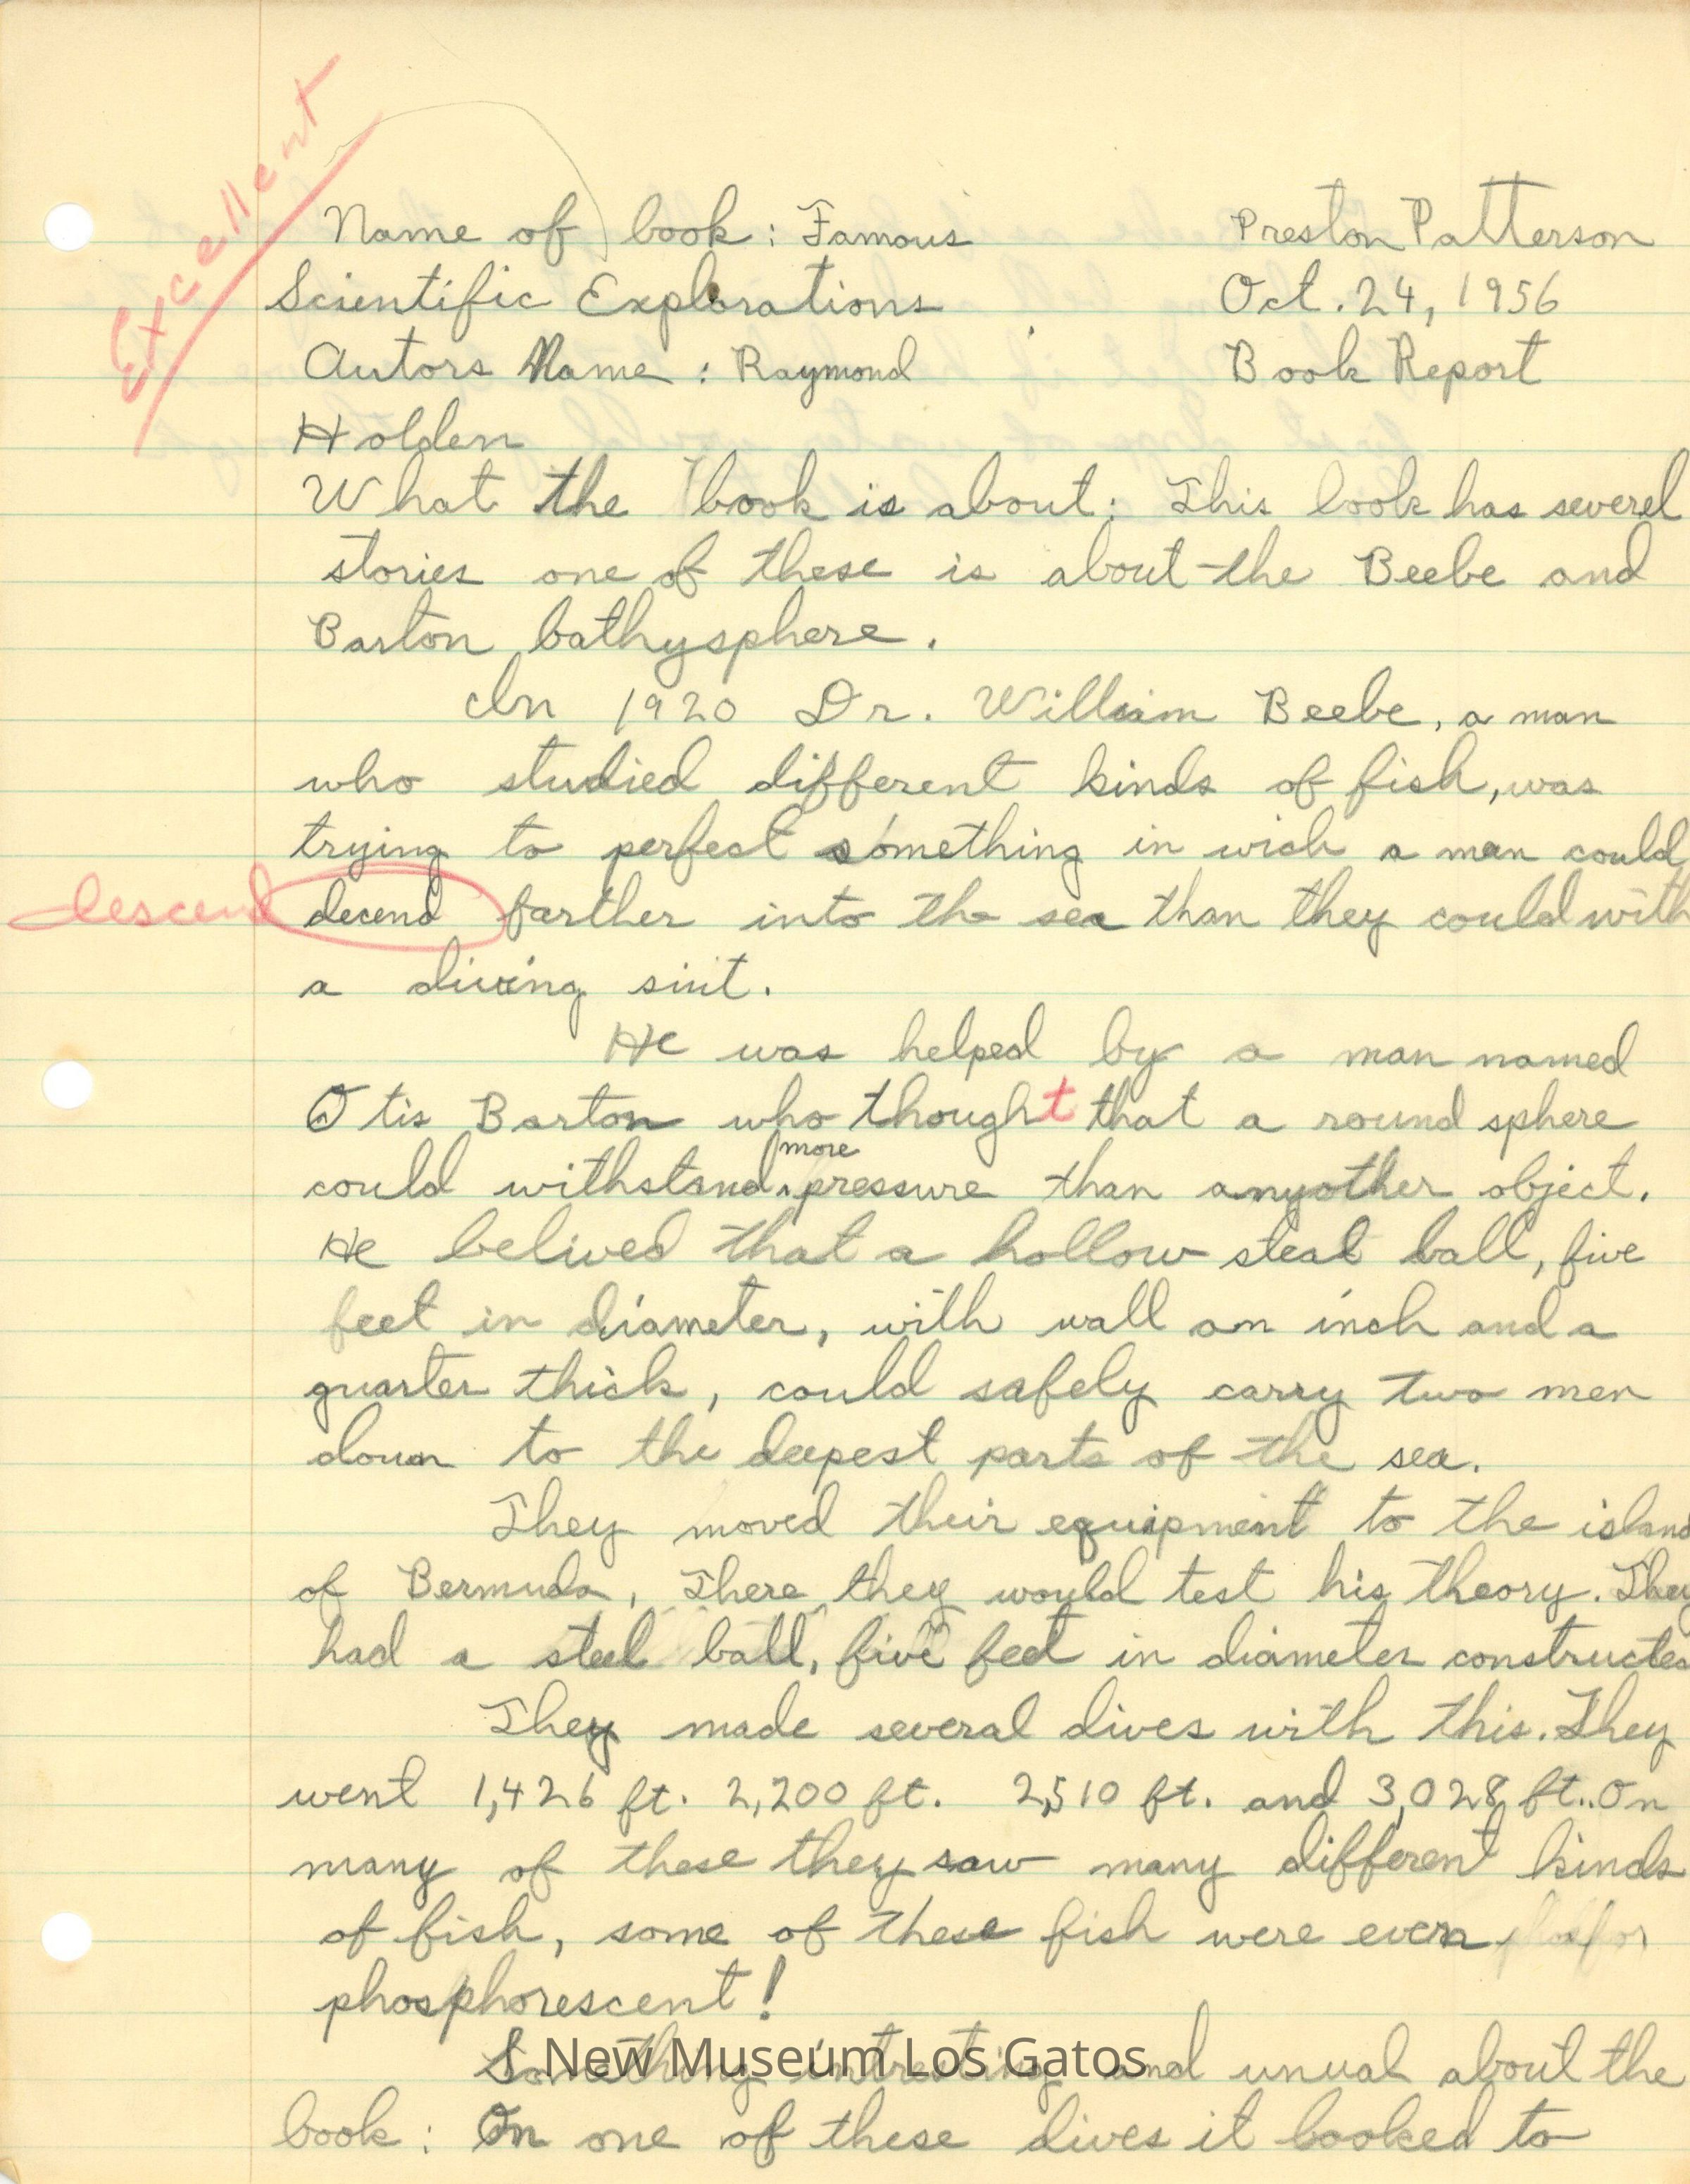 Excellent
Name of book: Famous
Scientific Explorations
Autors Name: Raymond
Holden
Preston Patterson
Oct. 24, 1956
Book Report
What the book is about: This book has severel
stories one of these is about the Beebe and
Barton bathysphere.
In 1920 Dr. William Beebe, a man
who studied different kinds of fish, was
trying to perfect something in wich a man could
descend decend farther into the sea than they could with
a diving siut.
He was helped by a man named
Otis Barton who thought that a round sphere
could withstand more pressure than anyother object.
He belived that a hollow steal ball, five
feet in diameter, with wall an inch and a
quarter thick, could safely carry two men
down to the deepest parts of the sea.
They moved their equipment to the island
of Bermuda, There they would test his theory. They
had a steel ball, five feet in diameter constructed
They made several dives with this. They
went 1,426 ft. 2,200 ft. 2,510 ft. and 3,028 ft.. On
many of these they saw many different kinds
of fish, some of these fish were even
phosphorescent!
Something intresting and unual about the
New Museum Los Gatos
book: On one of these dives it looked to